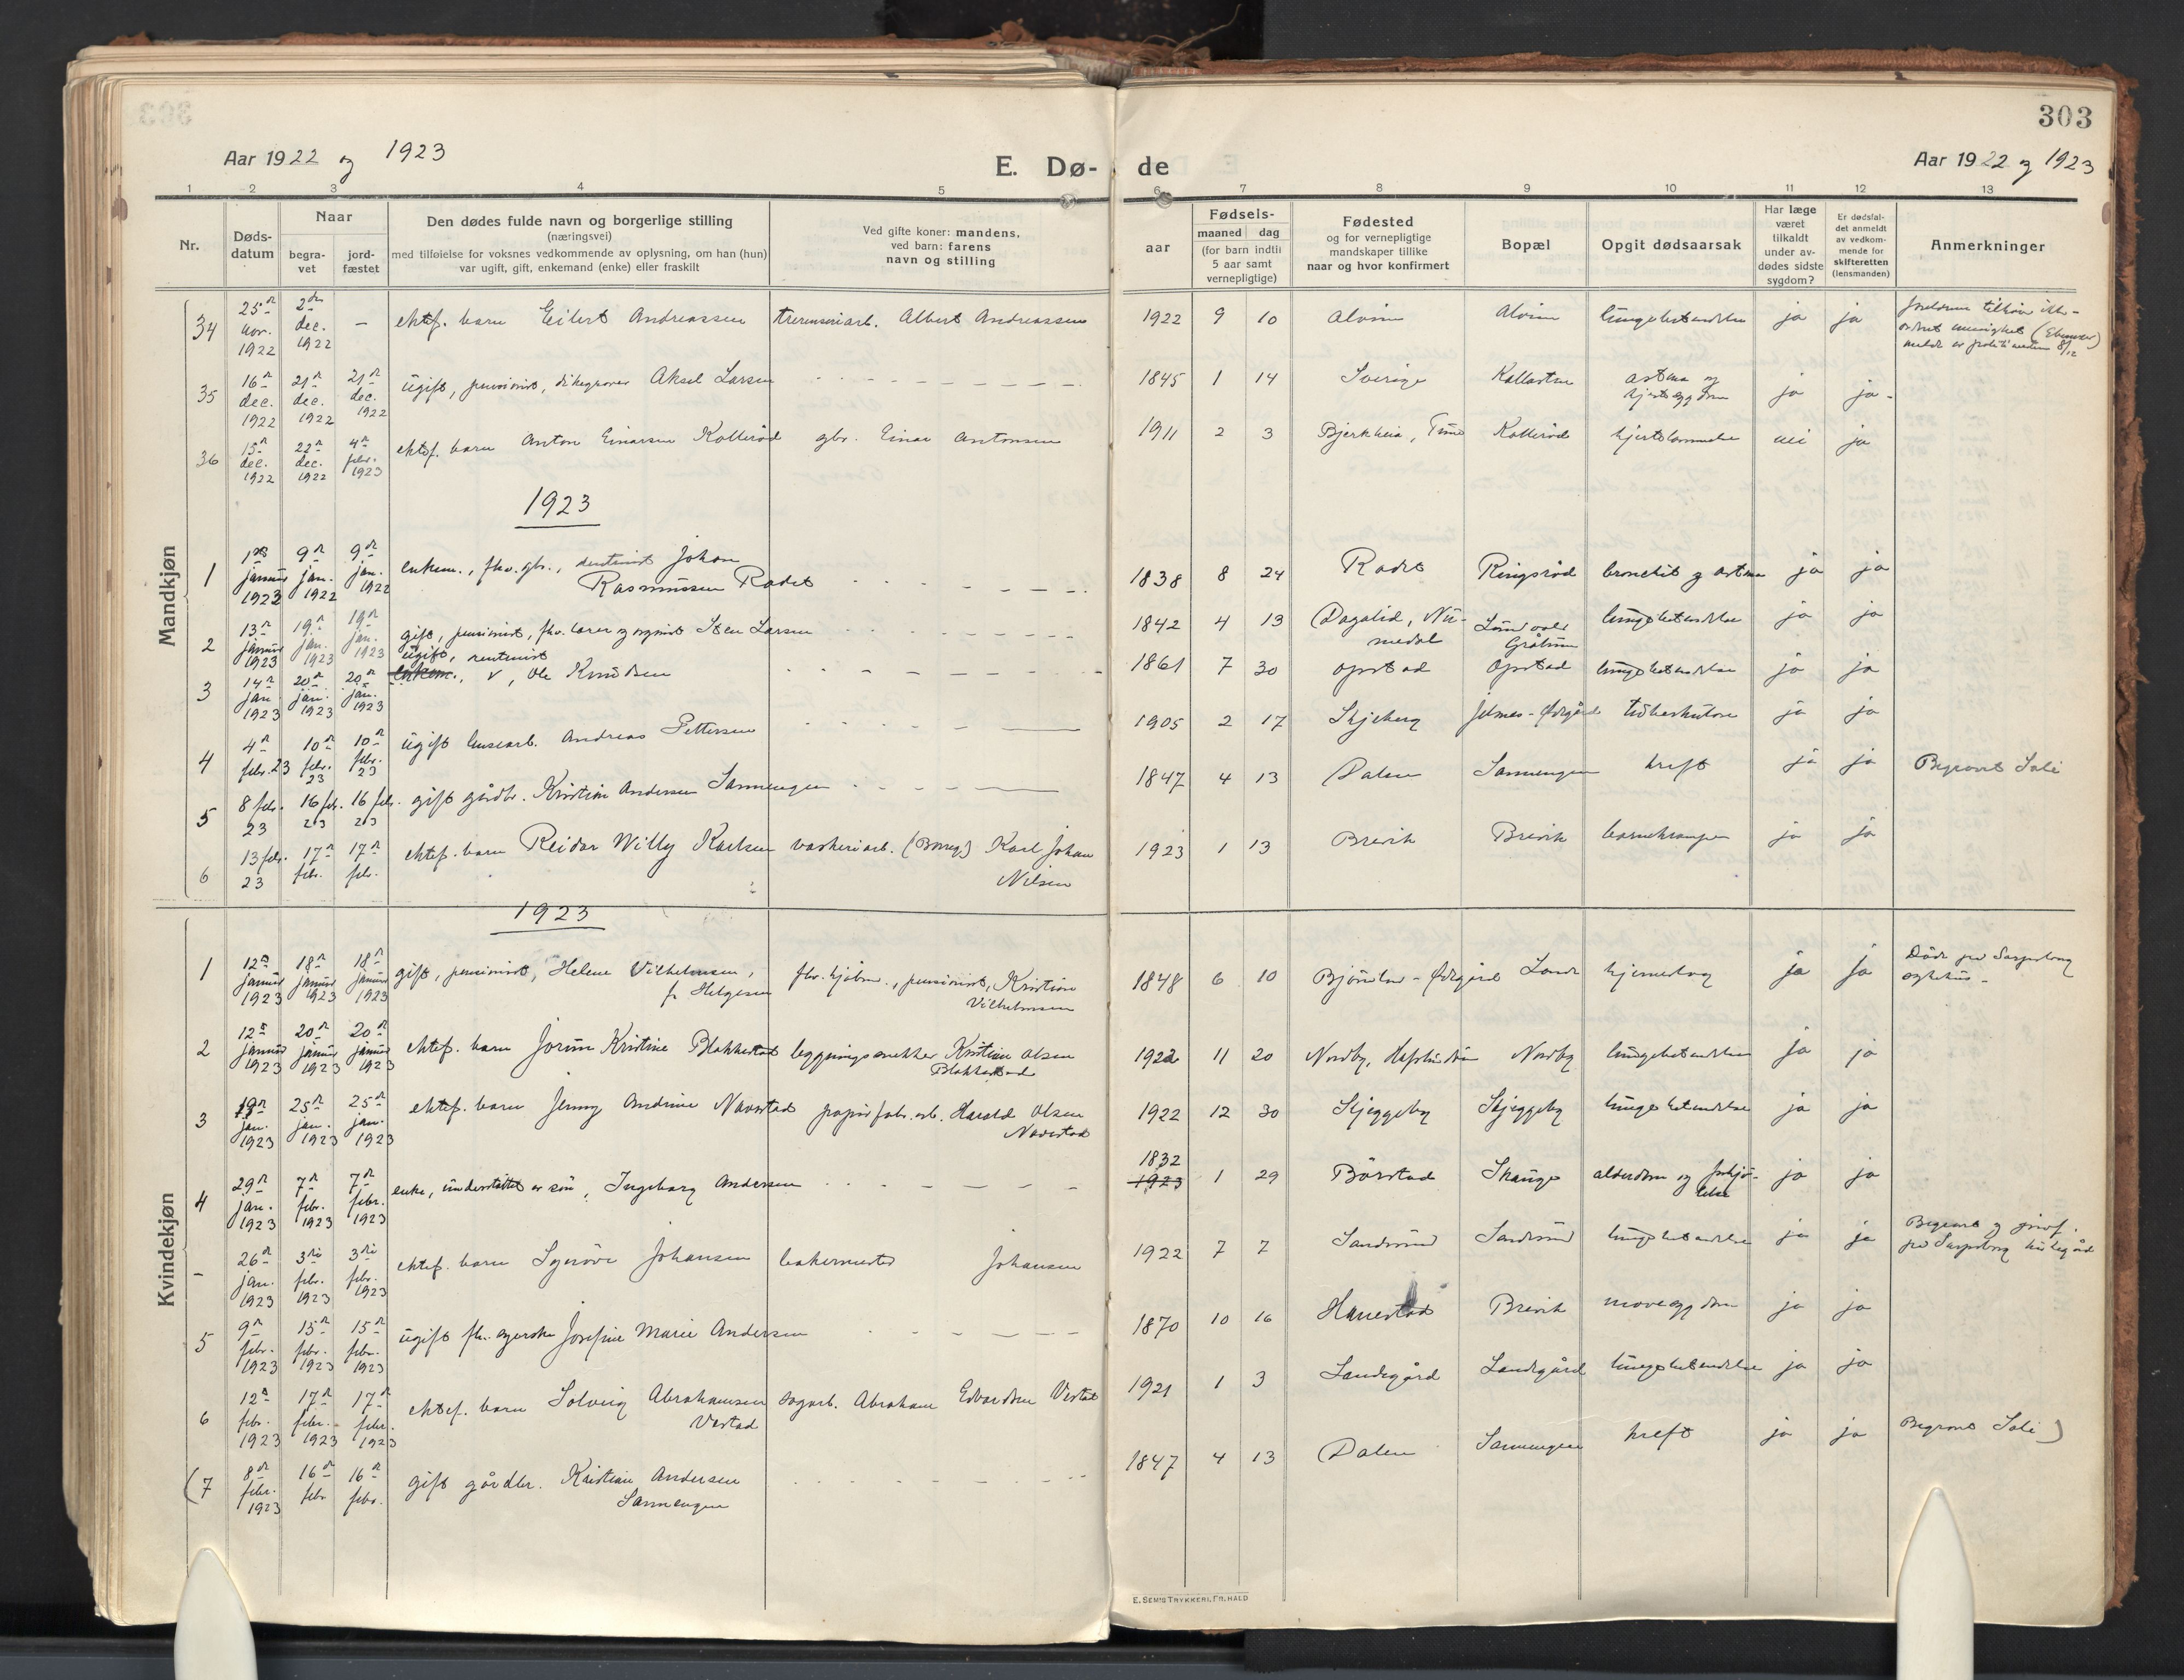 303
Aar 1922 og 1923
E. Dø- de
Aar 1922 og 1923
1 2 3 4 5 6 7 8 9 10 11 12 13
Nr.
Døds-
datum
Naar
begra-
vet
jord-
fæstet
Den dødes fulde navn og borgerlige stilling
(næringsvei)
med tilføielse for voksnes vedkommende av oplysning, om han (hun)
var ugift, gift, enkemand (enke) eller fraskilt
Ved gifte koner: mandens,
ved barn: farens
navn og stilling
Fødsels-
aar
maaned dag
(for barn indtil
5 aar samt
vernepligtige)
Fødested
og for vernepligtige
mandskaper tillike
naar og hvor konfirmert
Bopæl
Opgit dødsaarsak
Har læge
været
tilkaldt
under av-
dødes sidste
sygdom?
Er dødsfal-
det anmeldt
av vedkom-
mende for
skifteretten
(lensmanden)
Anmerkninger
Mandkjøn
34 25de nov. 1922 2den dec. 1922 – ektef. barn Eilert Andreassen Albert Andreassen 1922 9 10 Alvim Alvim lungebetændelse ja ja
35 16de dec. 1922 21de dec. 1922 21de dec. 1922 ugift, pensionist, Aksel Larsen 1845 1 14 Sverige astma og hjertesygdom ja ja
36 15de dec. 1922 22de dec. 1922 4de febr. 1923 ektef. barn Anton Einarsen Kollerød gbr. Einar Antonsen 1911 2 3 Bjerkheia, Tune Kollerød hjertelammelse nei ja
1923
1 1ste januar 1923 9de jan. 1922 9de jan. 1922 enkem., fhv. gbr., Johan
Rasmussen Radet 1838 8 24 Rade Ringsrød bronchit og astma ja ja
2 13de januar 1923 19de jan. 1923 19de jan. 1923 gift, pensionist, fhv. lærer og organist Sten Larsen 1842 4 13 Dagalid, Nu-
medal Grålum lungebetændelse ja ja
3 14de jan. 1923 20de jan. 1923 20de jan. 1923 ugift, rentenist
enkem., Ole Knudsen 1861 7 30 Opstad Opstad lungebetændelse ja ja
4 4de febr. 23 10de febr. 23 10de febr. 23 ugift Andreas Pettersen 1905 2 17 Skjeberg tuberkulose ja ja
5 8 febr. 23 16 feb. 23 16 feb. 23 gift gårdbr. Kristian Andersen Sannengen 1847 4 13 Dalen Sannengen kreft ja ja Begravet Soli
6 13 febr. 23 17de febr. 17de febr. ektef. barn Reidar Willy Karlsen vaskeriarb. (Borreg.) Karl Johan
Nilsen 1923 1 13 Brevik Brevik barnekramper ja ja
Kvindekjøn
1923
1 12te januar 1923 18de januar 1923 18de januar 1923 gift, pensionist, Helene Vilhelmsen,
f. Helgesen pensionist, Kristian
Vilhelmsen 1848 6 10 Lande hjerneslag ja ja Døde på Sarpsborg
sykehus
2 12te januar 1923 20de januar 1923 20de januar 1923 ektef. barn Jorun Kristine Blakkestad Kristian Olsen
Blakkestad 1922 11 20 Nordby, Hafslundsøen Nordby lungebetændelse ja ja
3 19de jan. 1923 25de jan. 1923 25de jan. 1923 ektef. barn Jenny Andrine Navestad papirfabr.arb. Harald Olsen
Navestad 1922 12 30 Skjeggeby Skjeggeby lungebetændelse ja ja
4 29de jan. 1923 7de febr. 1923 7de febr. 1923 enke, understøttet av søn, Ingeborg Andersen 1832
1923 1 29 Børstad alderdom og forkjø-
lelse ja ja
– 26de jan. 1923 3die febr. 1923 3die febr. 1923 ektef. barn Synøve Johansen bakermester Johansen 1922 7 7 Sandsund Sandsund lungebetændelse ja ja Begravet og jordf.
på Sarpsborg kirkegård
5 9de febr. 1923 15de febr. 1923 15de febr. 1923 ugift fhv. syerske Josefine Marie Andersen 1870 10 16 Hanestad Brevik mavesygdom ja ja
6 12te febr. 1923 17de febr. 1923 17de febr. 1923 ektef. barn Solveig Abrahamsen
Vestad sagarb. Abraham Edvardsen Vestad 1921 1 3 Landegård Landegård lungebetændelse ja ja
(7 8de febr. 1923 16de febr. 16de febr. gift gårdbr. Kristian Andersen
Sannengen 1847 4 13 Dalen Sannengen kreft ja ja Begravet Soli)
E. SEM'S TRYKKERI, FR.HALD